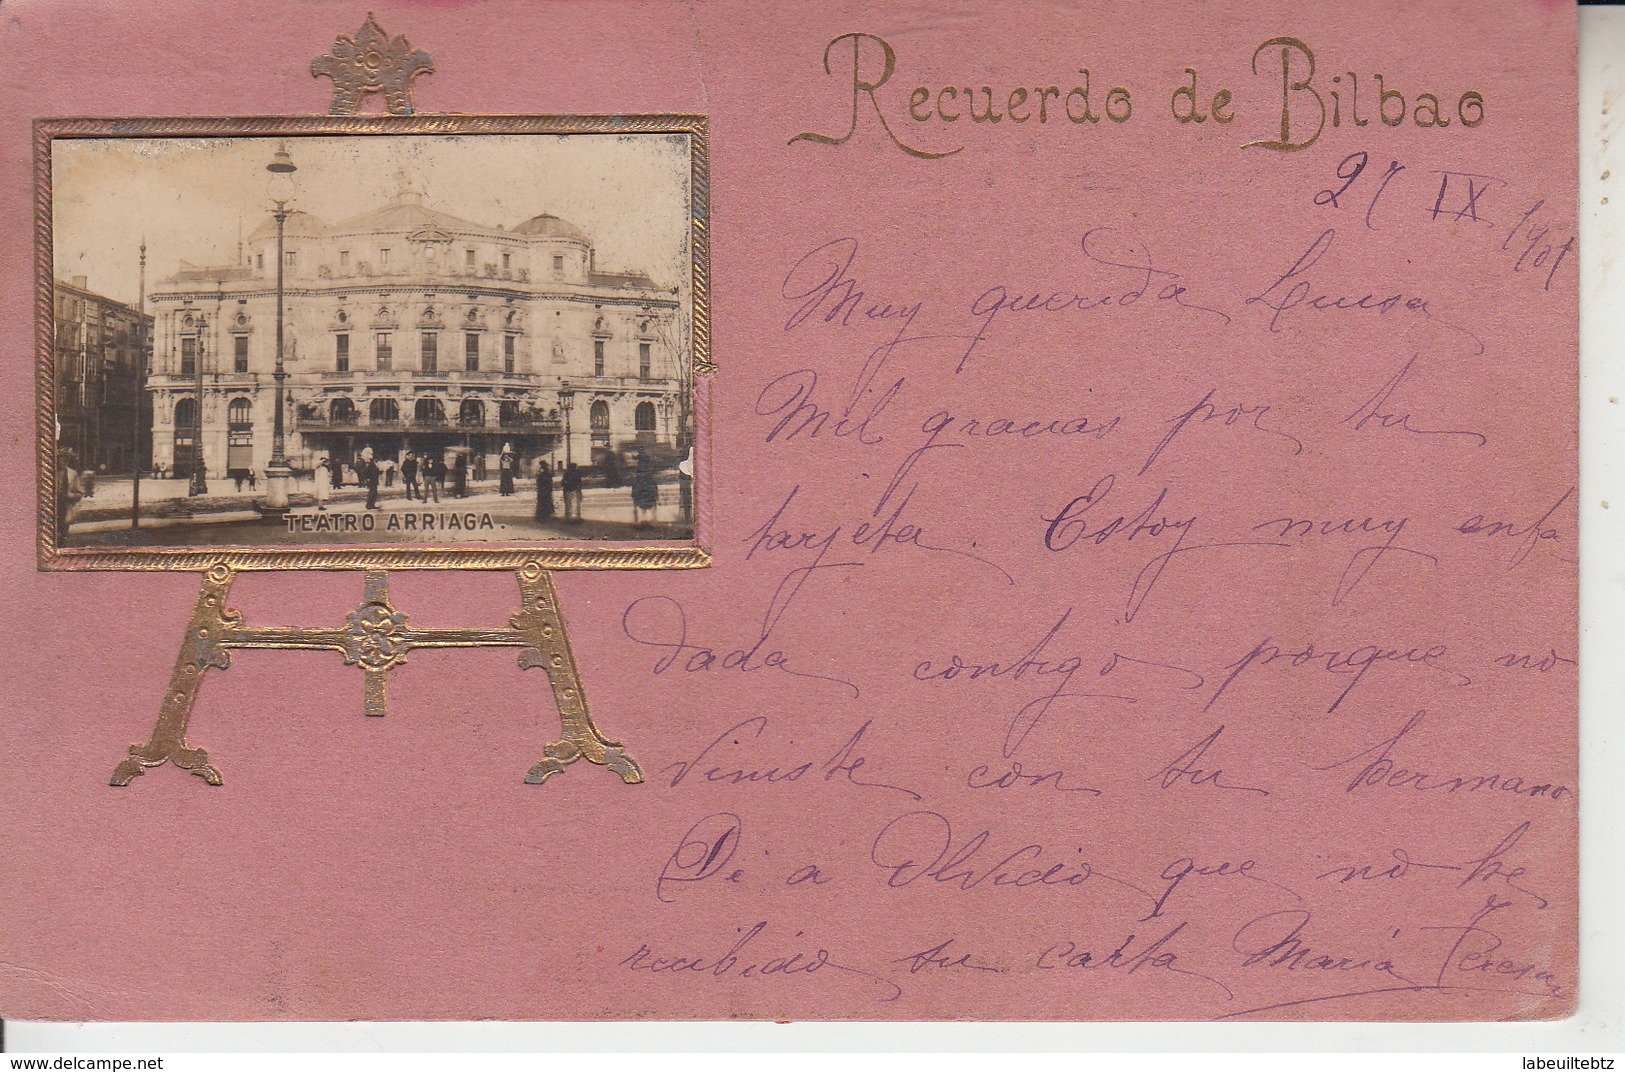 Recuerdo de Bilbao
27 IX 1901
TEATRO ARRIAGA.
Muy querida Luisa
Mil gracias por tu
tarjeta. Estoy muy enfa
dada contigo porque no
viniste con tu hermano
Di a Olvido que no he
recibido su carta María Teresa
delcampe.net
labeuiltebtz